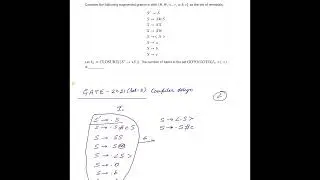 Consider the following augmented grammar with {#, @, <, >, a, b, c} as the set of terminals.
S' → S
S → S#cS
S → SS
S → S@
S → < S >
S → a
S → b
S → c
Let I₀ = CLOSURE({S' → •S}). The number of items in the set GOTO(GOTO(I₀, <), <) is
GATE - 2021 (Set-2) Compiler design
I₀
S' → .S
S → .S#cS
S → .SS
S → .S@
S → .<S>
S → .a
S → .b
S → <.S>
S → .S#c